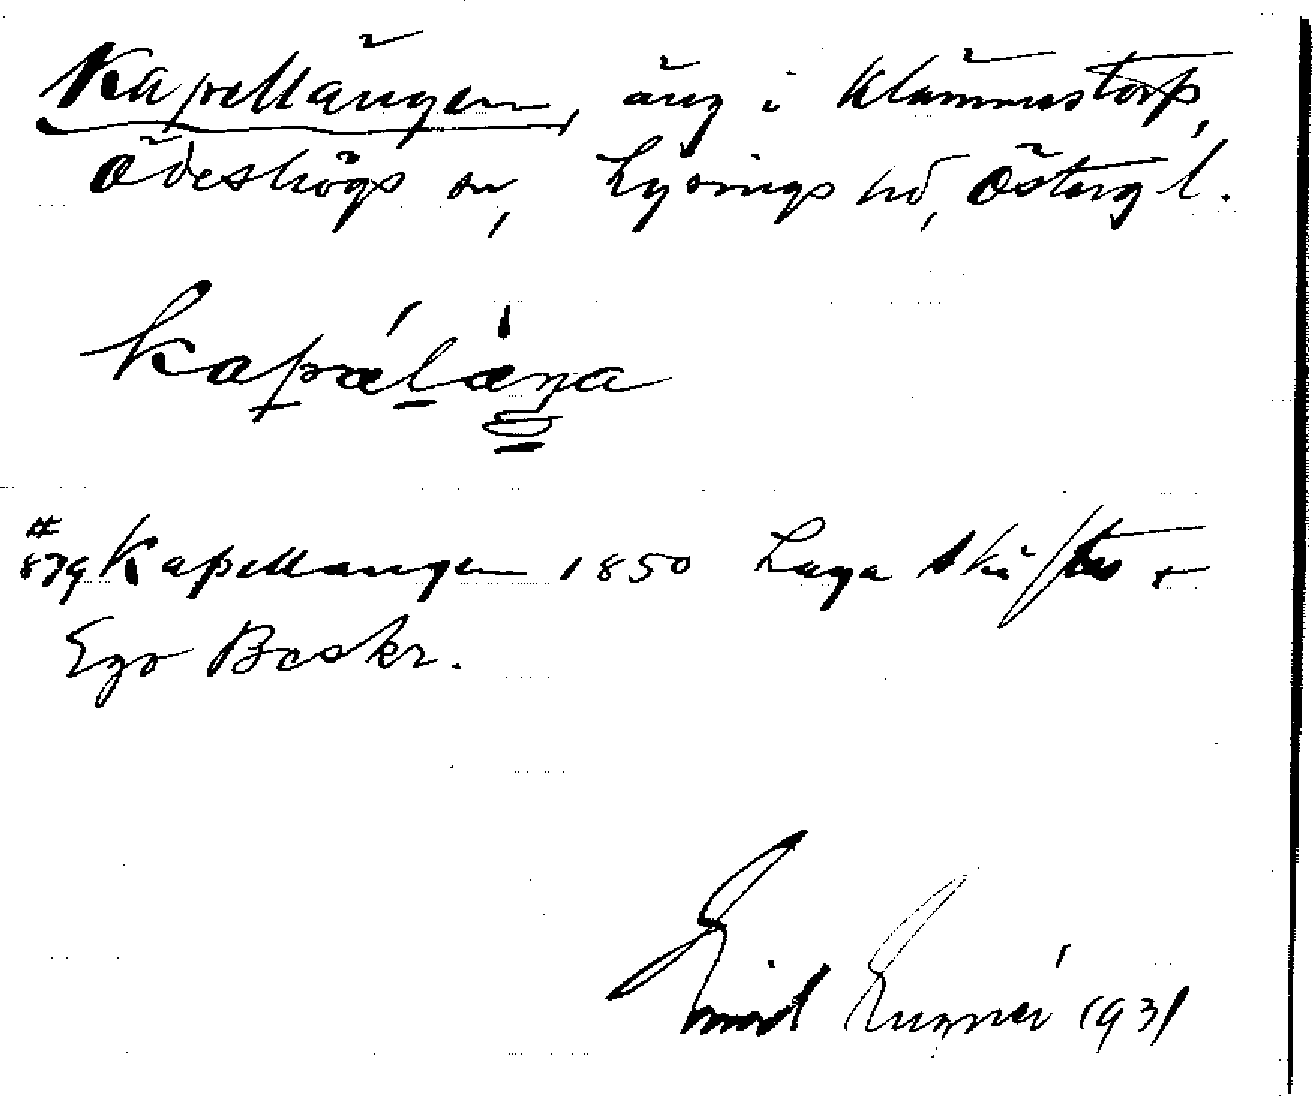 Kapellängen, äng i Klämmestorp,
Ödeshögs sn, Lysings hd, Östergl.
kapǽlæŋa
# 879 Kapellängen 1850 Laga skifte +
Ego Beskr.
Emid Engnér 1931